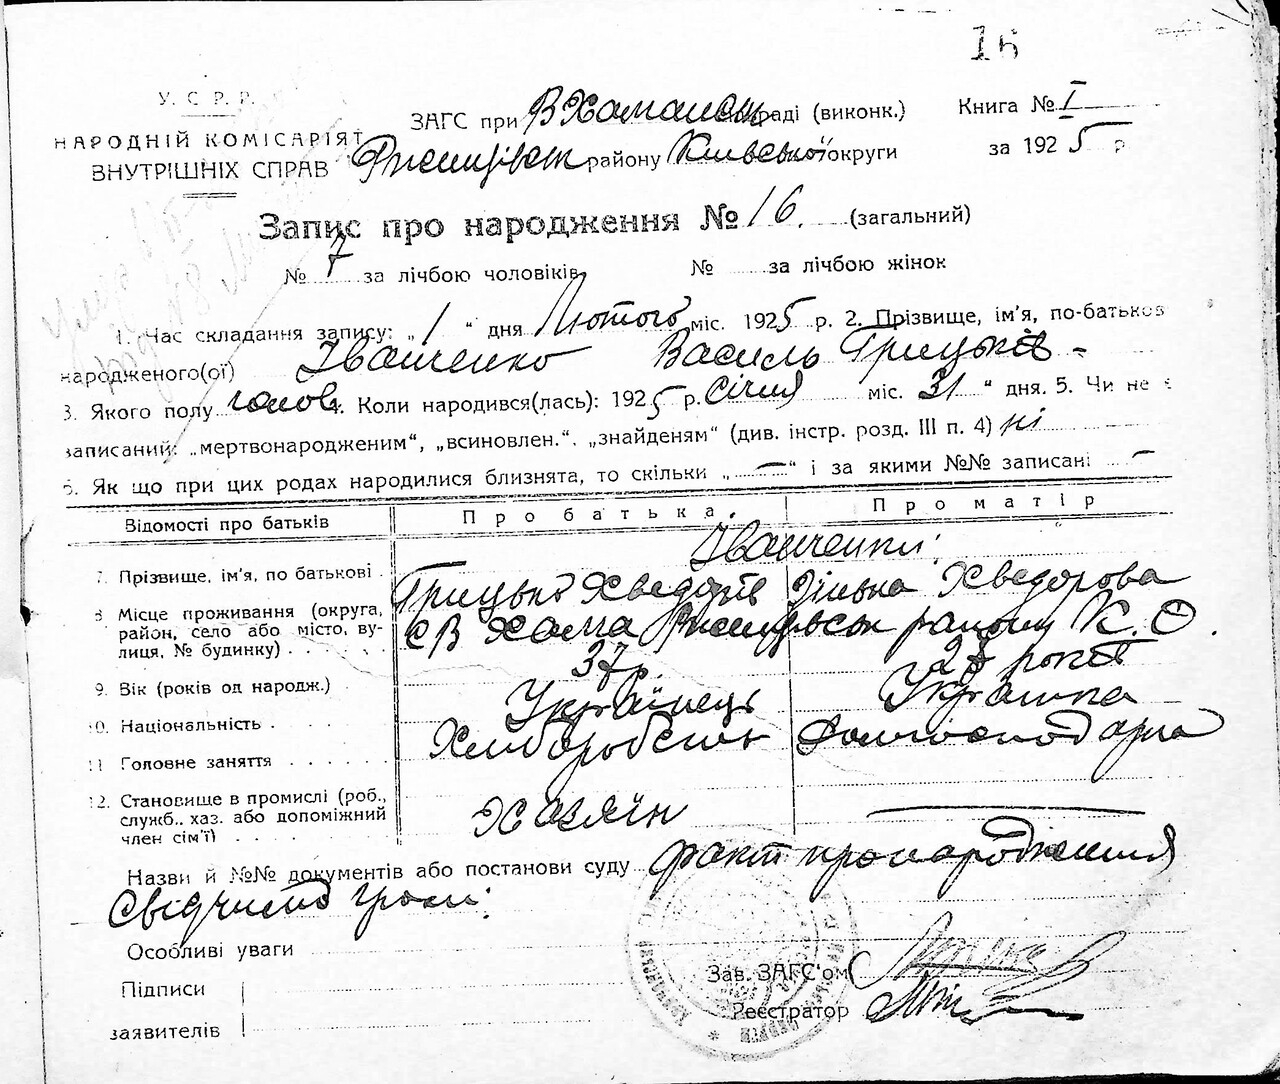 16
У. С. Р. Р.
НАРОДНІЙ КОМІСАРІЯТ
ВНУТРІШНІХ СПРАВ
ЗАГС при В Хаманськ раді (виконк.)
району Київської округи
Книга № I
за 1925 р
Запис про народження № 16. (загальний)
№ 7 за лічбою чоловіків № за лічбою жінок
1. Час складання запису: „1“ дня Лютого міс. 1925 р. 2. Прізвище, ім'я, по-батьков
народженого(ої) Іванченко Василь Грицьків -
3. Якого полу чолов 4. Коли народився(лась): 1925 р. січня міс. 31 “ дня. 5. Чи не є
записаний: „мертвонародженим“, „всиновлен.“, „знайденям“ (див. інстр. розд. III п. 4) ні
6. Як що при цих родах народилися близнята, то скільки „ — “ і за якими №№ записані —
Відомості про батьків Про батька Про матір
Іванченки:
7. Прізвище, ім'я, по батькові Грицько Хведорів Хведорова
8 Місце проживання (округа, район, село або місто, вулиця, № будинку) с В Хама району К. О.
9. Вік (років од народж.) 37р. 27 років
10. Національність Українець Українка
11 Головне заняття Хліборобство Домогосподарка
12. Становище в промислі (роб., служб.. хаз. або допоміжний член сім'ї) Хазяїн
Назви й №№ документів або постанови суду факт про народження
Свідчить
Особливі уваги
Підписи
заявителів
Зав. ЗАГС'ом
Реєстратор